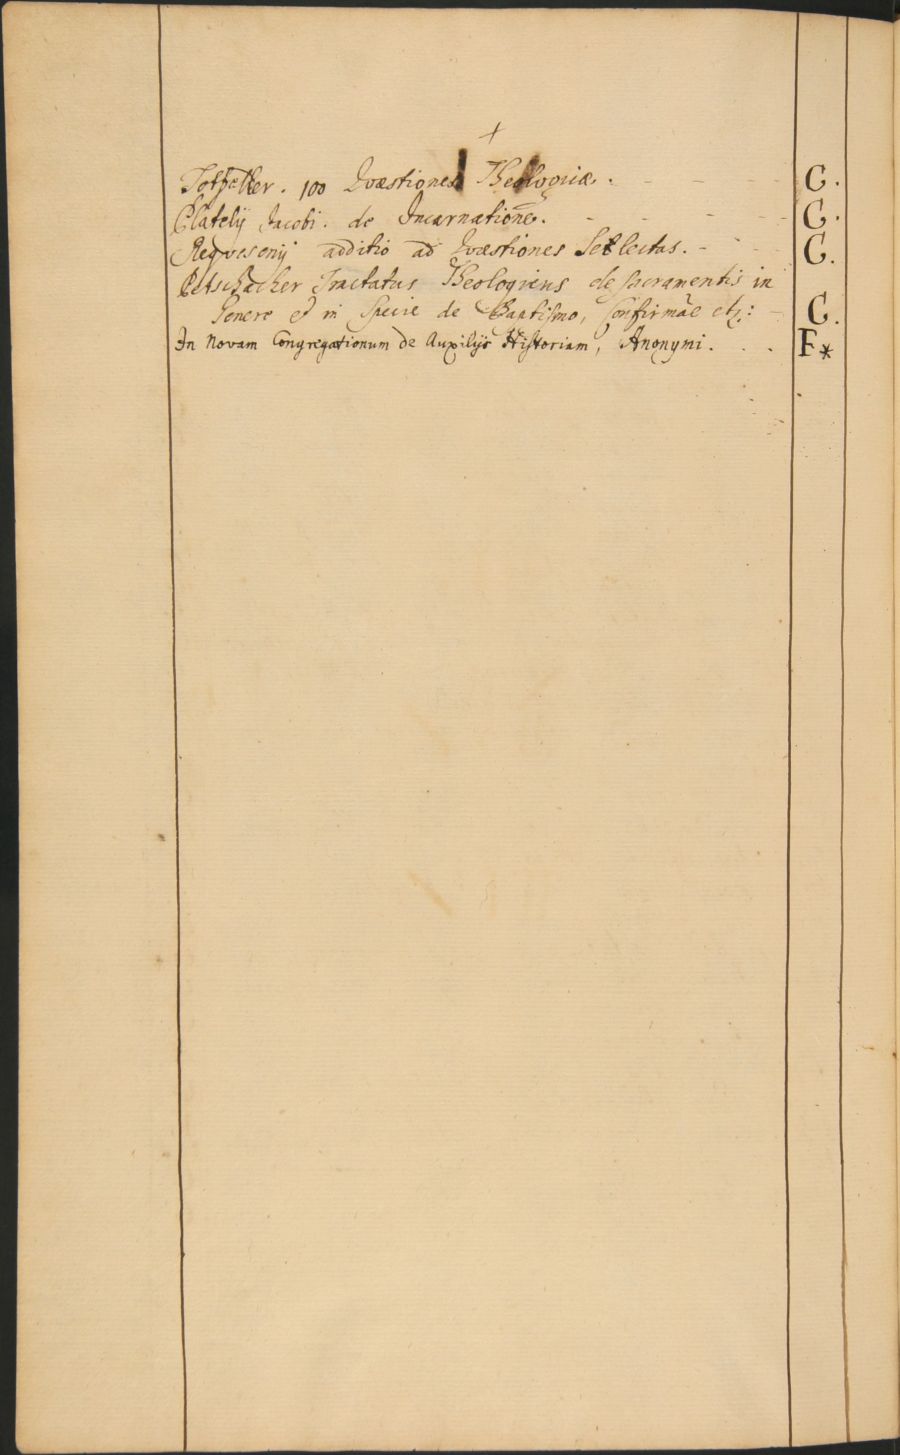 +
100 Quæstiones Theologicæ. G.
Platelij Jacobi. de Incarnatione. G.
Requesenij additio ad Quæstiones Selectas. G.
Petschacher Tractatus Theologicus de Sacramentis in
Genere et in Specie de Baptismo, Confirmãe etz: G.
In Novam Congregationum de Auxilijs Historiam, Anonymi. F*